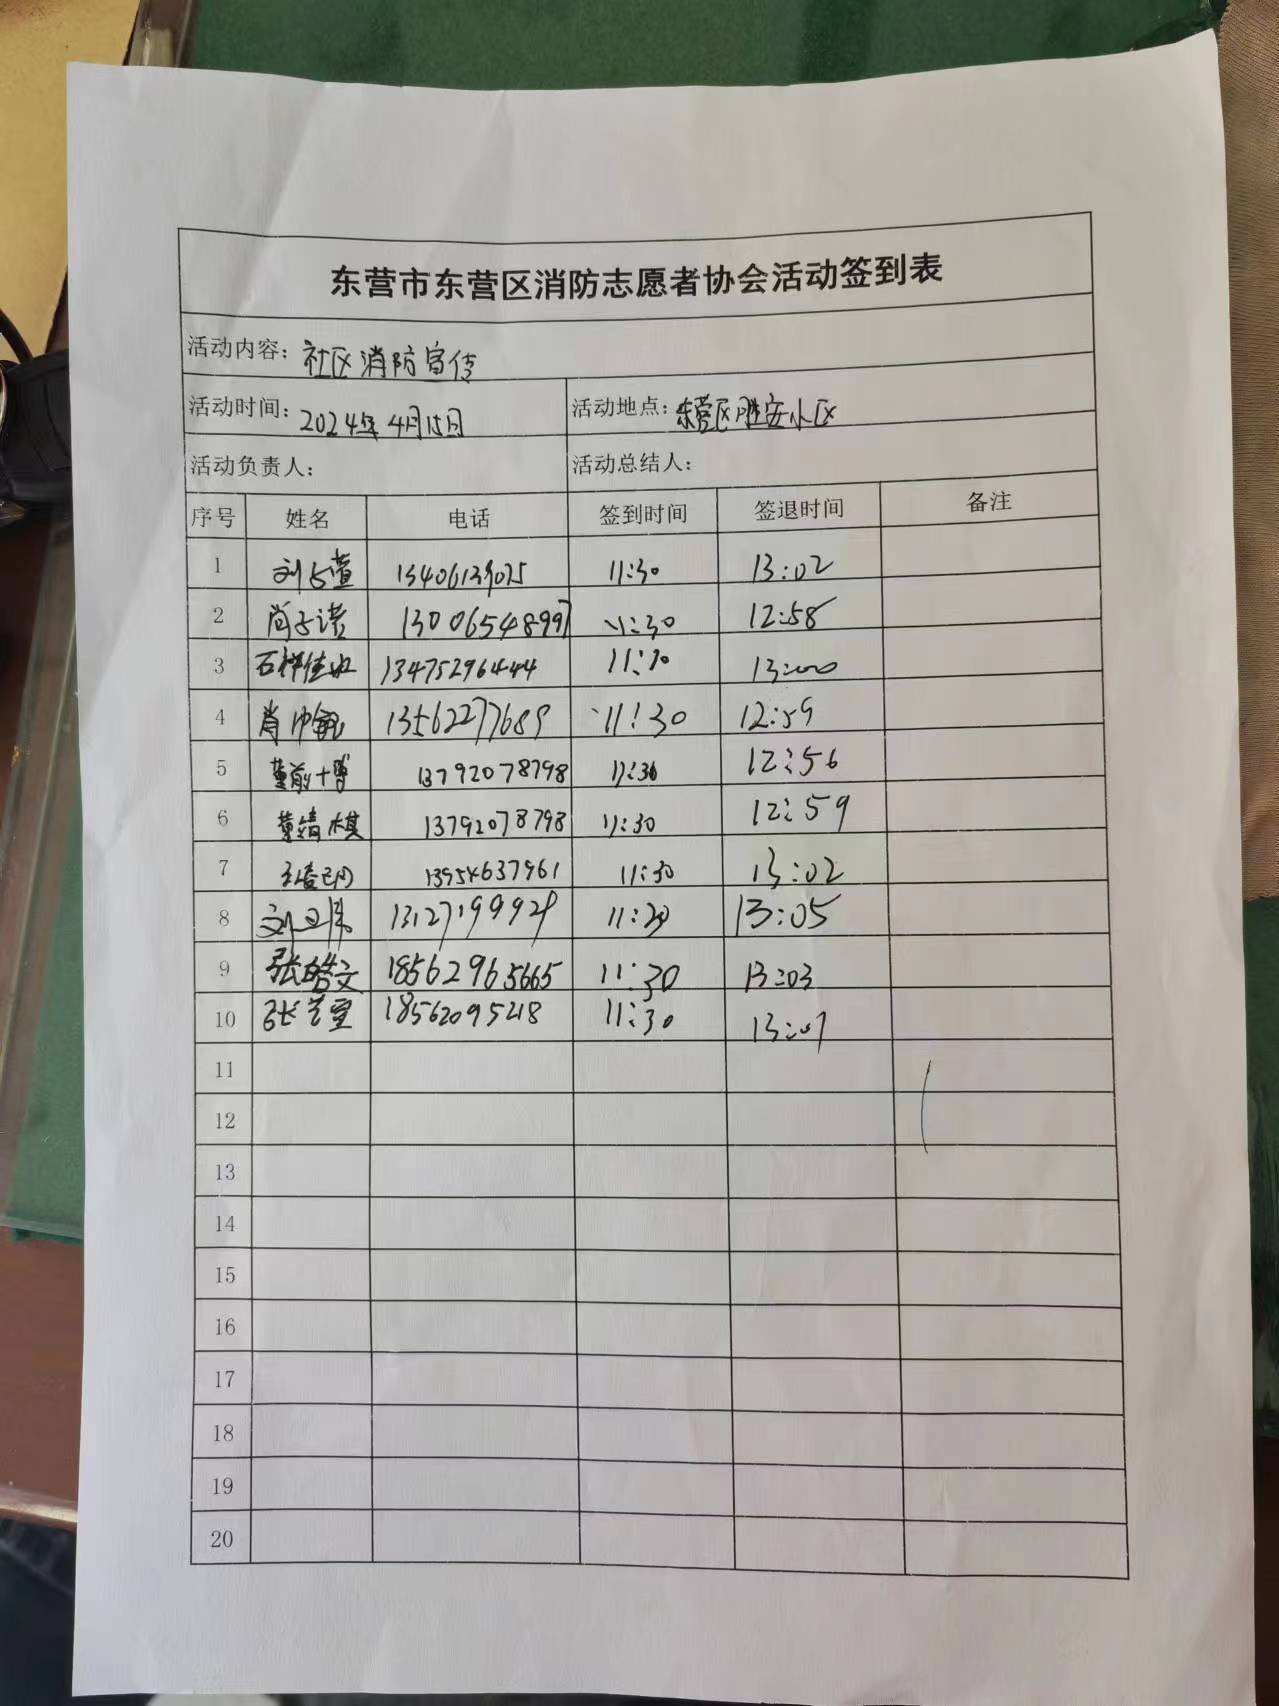 东营市东营区消防志愿者协会活动签到表
活动内容：社区消防宣传
活动时间：2024年4月15日 活动地点：东营区胜安小区
活动负责人： 活动总结人：
序号 姓名 电话 签到时间 签退时间 备注
1 刘 萱 13406139075 11:30 13:02
2 肖子诺 13006548997 11:30 12:58
3 石祥佳 13475296444 11:30 13:00
4 肖帅 13562277689 11:30 12:59
5 董 博 13792078798 11:30 12:56
6 董婧棋 13792078798 11:30 12:59
7 13954637961 11:30 13:02
8 刘卫伟 13127199929 11:30 13:05
9 张皓文 18562965665 11:30 13:03
10 张艺萱 18562095218 11:30 13:07
11
12
13
14
15
16
17
18
19
20